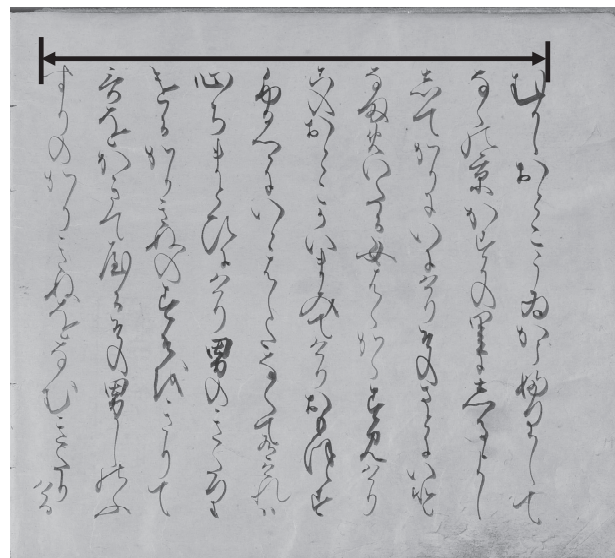 むかしおとこうゐかうふりして
なら乃京かすかの里にしるよし
してかりにいにけりそのさとにいと
なまめいたる女はらからすみけり
このおとこかいまみてけりおもほえす
ふるさとにいとはしたなくてありけれは
心ちまとひにけり男のきたり
けるかりきぬのすそをきりて
哥をかきてやるその男しのふ
すりのかりきぬをなむきたり
ける